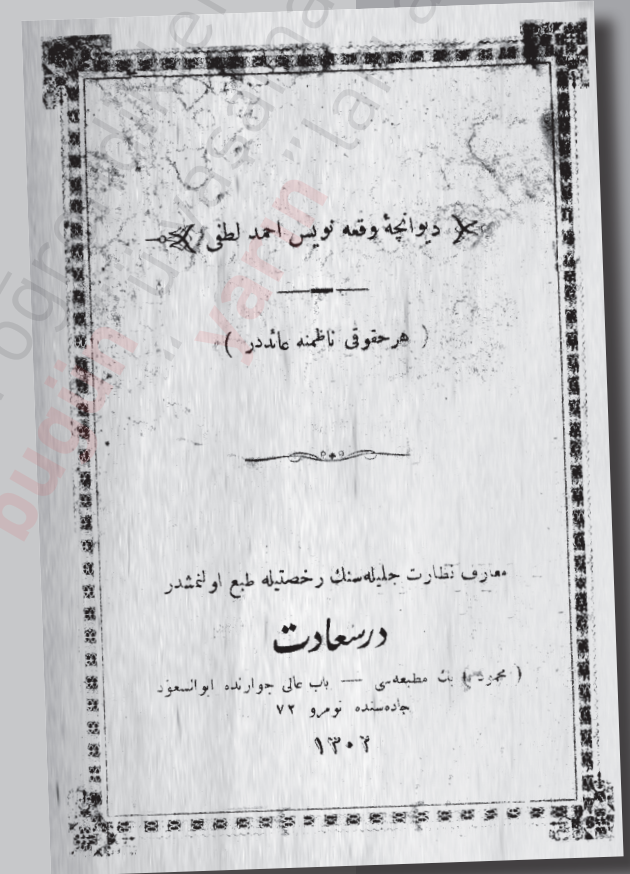 ديوانچهٔ وقعه نويس احمد لطفى
( هر حقوقى ناظمنه عائددر )
معارف نظارت جليله‌سنك رخصتيله طبع اولنمشدر
درسعادت
( محمود بك مطبعه‌سى — باب عالى جوارنده ابوالسعود
جاده‌سنده نومرو ٧٢
١٣٠٢
bugün
yarın